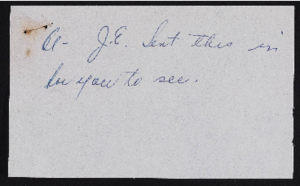 Al- J.E. sent this in
for you to see.